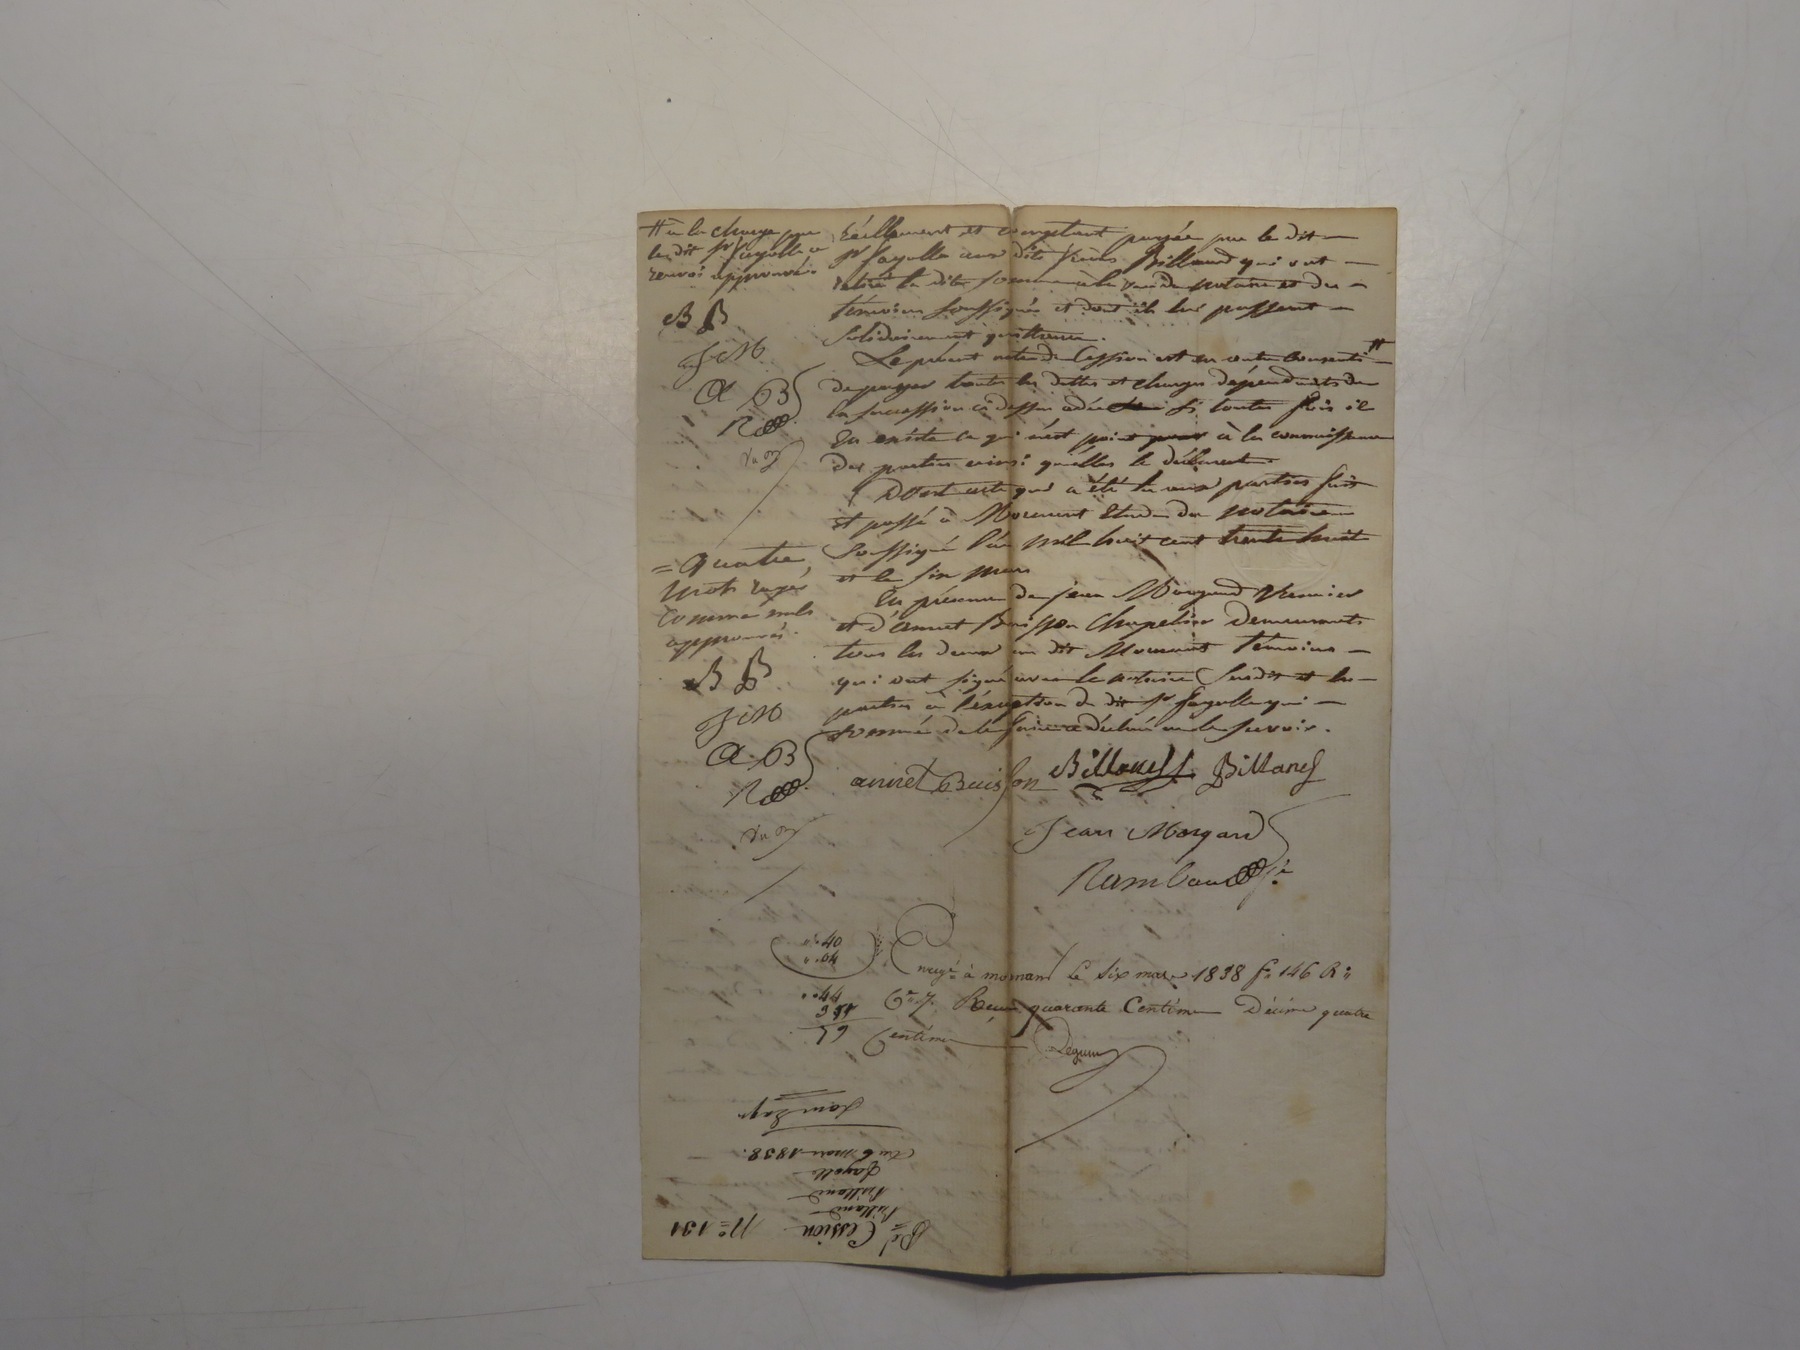 # à la charge par
le dit sr fayolle
renvoi approuvé
B B
J M
A B
R
= quatre
mots rayés
comme nuls
approuvés.
B B
J M
A. B
R
réellement et comptant payée par le dit
sr fayolle aux dits frères Billaud qui ont
retiré la dite somme à la vue du notaire et des
témoins soussignés et dont ils lui passent
solidairement quittance.
Le présent acte de Cession est en outre consenti #
de payer toutes les dettes et charges dépendants de
la succession ci dessus si toutes fois il
en existe ce qui n'est point à la connaissance
des parties ainsi qu'elles le déclarent.
Dont acte qui a été lu aux parties fait
et passé à Mornant Etude du notaire
soussigné l'an mil huit cent trente huit
et le six mars
En présence de jean Morgand
et d'annet Buisson Chapelier demeurants
tous les deux au dit Mornant témoins
qui ont signé avec le notaire susdit et les
parties à l'exception du dit sr fayolle qui
sommé de le faire a déclaré ne le savoir.
annet Buisson Billaud Billaud
Jean Morgand
Rambaud
Enregé à mornant le six mars 1838 fo 146 Ro
Cse 7. Reçu quarante Centimes Décime quatre
Centimes
No 131
Cession
Billaud
Billaud
fayolle
Du 6 mars 1838.